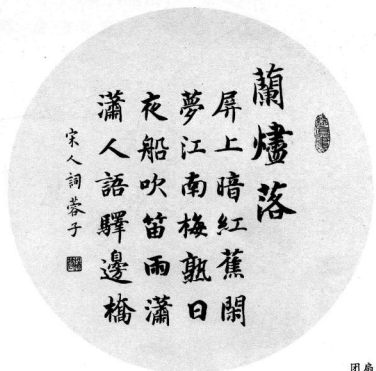 蘭燼落
屏上暗紅蕉閑
夢江南梅熟日
夜船吹笛雨瀟
瀟人語驛邊橋
宋人詞蓉子
团扇